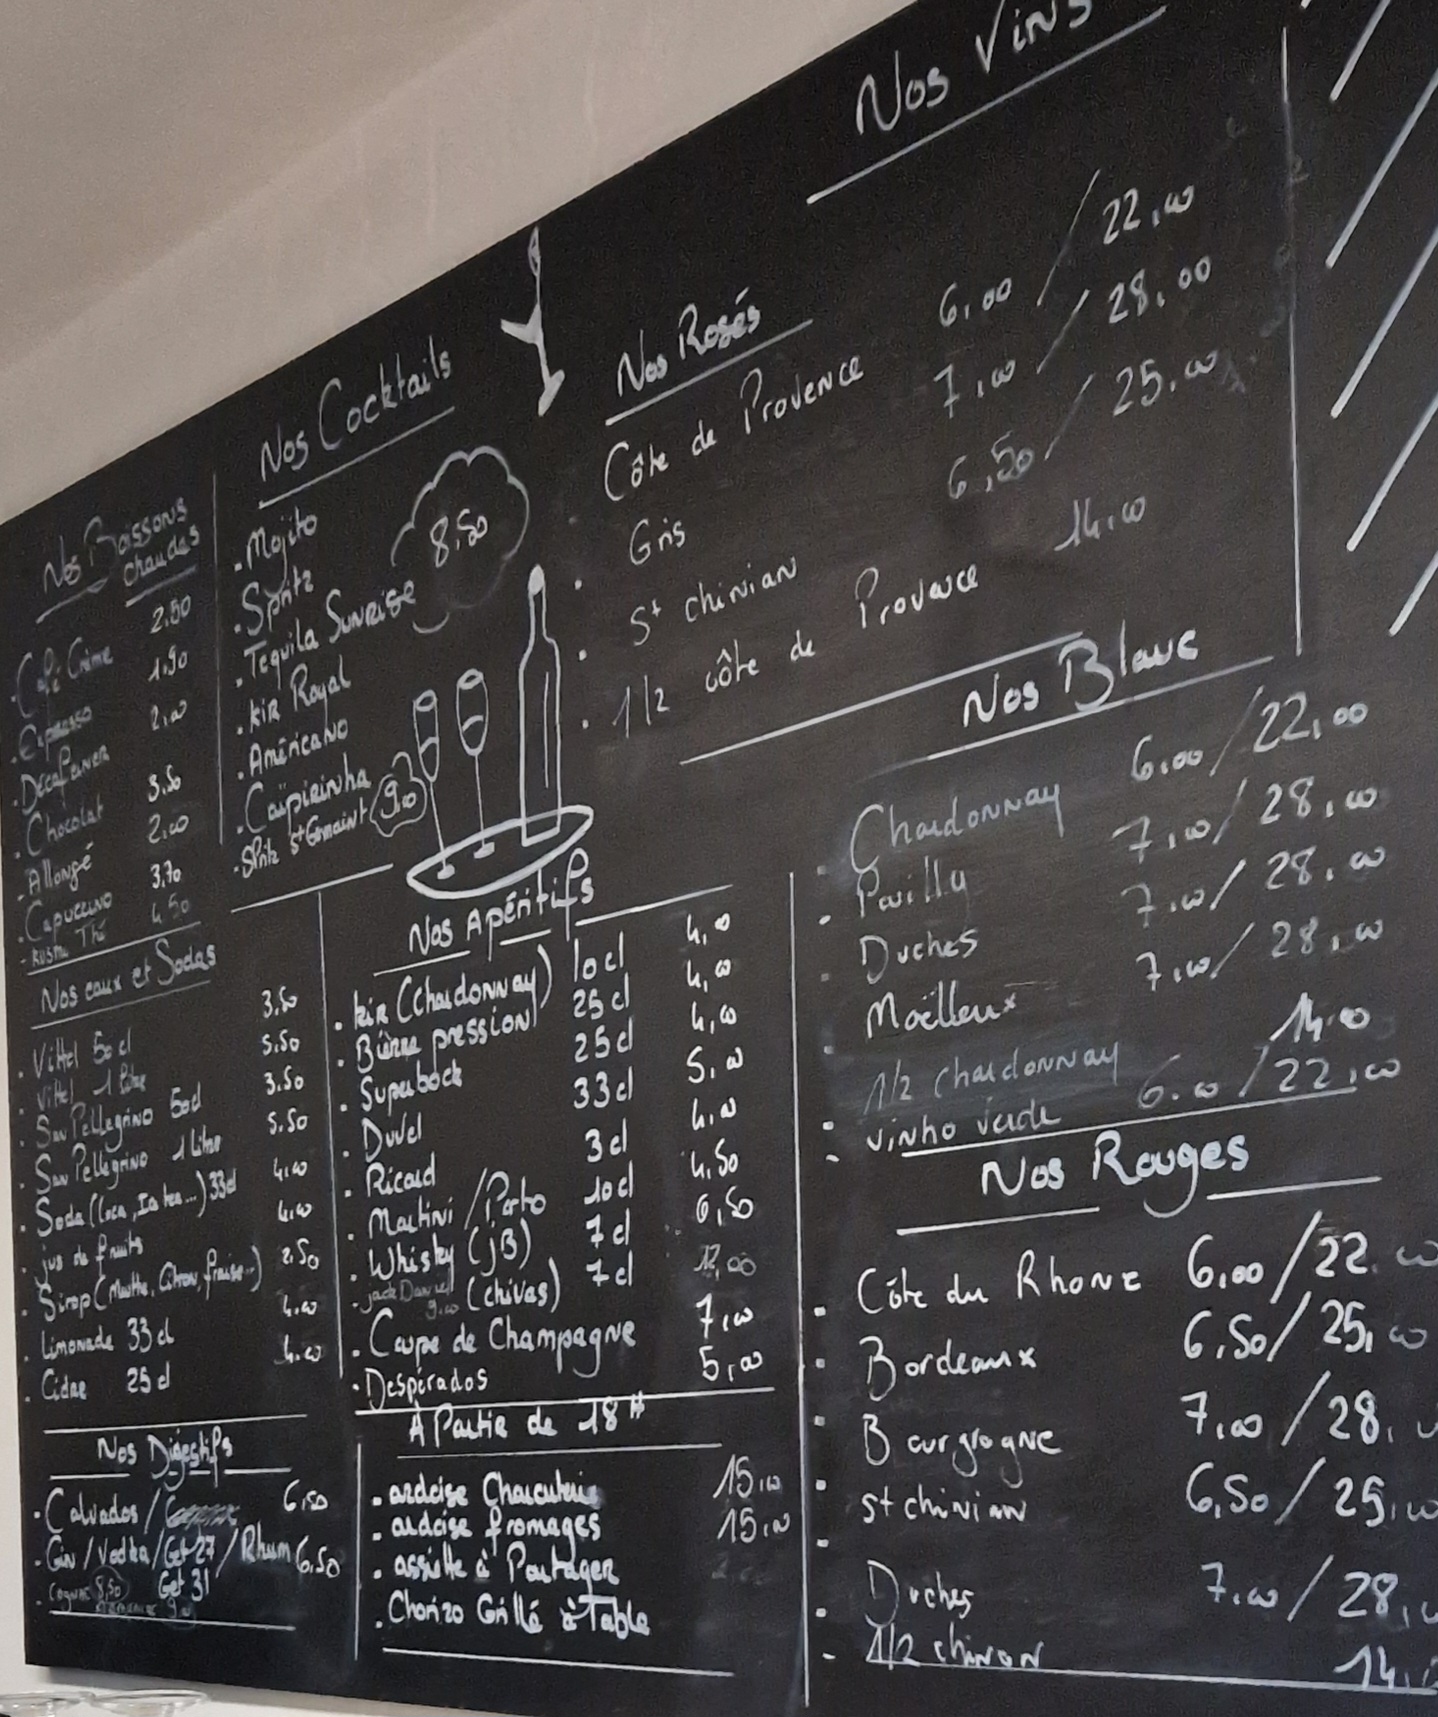 Nos Vins
Nos Boissons
chaudes
. Café Crème 2.50
. Expresso 1.90
. Décaféiner 2.00
. Chocolat 3.50
. Allongé 2.00
. Capuccino 3.70
- Kusmi Thé 4.50
Nos eaux et Sodas
. Vittel 50 cl 3.50
. Vittel 1 litre 5.50
. San Pellegrino 50cl 3.50
. San Pellegrino 1 Litre 5.50
. Soda (Coca, Ice tea...) 33cl 4.00
. jus de fruits 4.00
. Sirop (Menthe, Citron, fraise...) 2.50
. Limonade 33 cl 4.00
. Cidre 25 cl 4.00
Nos Digestifs
. Calvados / 6,50
. Gin / Vodka / Get 27 / Rhum 6,50
Get 31
. Cognac 8,50
9.00
Nos Cocktails
. Mojito
. Spritz
. Tequila Sunrise
. Kir Royal
. Américano
. Caïpirinha
8,50
. Spritz St Germaint 9,00
Nos Apéritifs
. Kir (Chardonnay) 10 cl 4,00
. Bière pression 25 cl 4,00
. Superbock 25 cl 4,00
. Duvel 33 cl 5,00
. Ricard 3 cl 4,00
. Martini / Porto 10 cl 4,50
. Whisky (jB) 7 cl 6,50
. jack Daniel (chivas) 7 cl 12,00
9.00
. Coupe de Champagne 7,00
. Despérados 5,00
À Partir de 18H
. ardoise Charcuterie 15,00
. ardoise fromages 15,00
. assiette à Partager
. Chorizo Grillé à Table
Nos Rosés
. Côte de Provence 6,00 / 22,00
. Gris 7,00 / 28,00
. St chinian 6,50 / 25,00
. 1/2 côte de Provence 14,00
Nos Blanc
. Chardonnay 6,00 / 22,00
. Pouilly 7,00 / 28,00
. Duches 7,00 / 28,00
. Moëlleux 7,00 / 28,00
. 1/2 chardonnay 14,00
- vinho verde 6.00 / 22,00
Nos Rouges
. Côte du Rhone 6,00 / 22,00
. Bordeaux 6,50 / 25,00
. Bourgogne 7,00 / 28,
. St chinian 6,50 / 25,00
. Duches 7,00 / 28,
- 1/2 chinon 14,